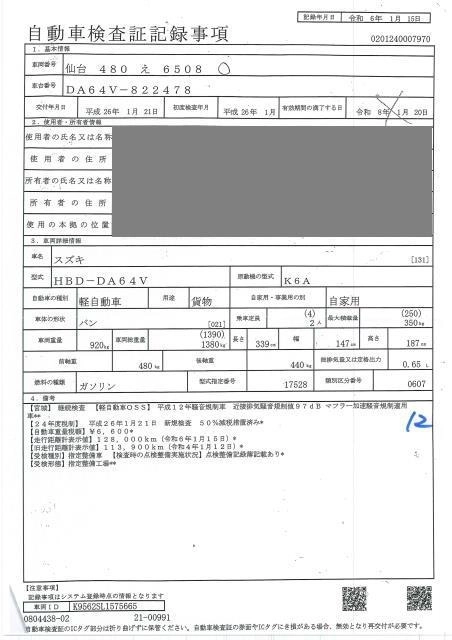 記録年月日 令和 6年 1月 15日
自動車検査証記録事項
0201240007970
1. 基本情報
車両番号 仙台 480 え 6508
車台番号 DA64V-822478
交付年月日 平成 26年 1月 21日 初度検査年月 平成 26年 1月 有効期間の満了する日 令和 8年 1月 20日
2. 使用者・所有者情報
使用者の氏名又は名称
使用者の住所
所有者の氏名又は名称
所有者の住所
使用の本拠の位置
3. 車両詳細情報
車名 スズキ [131]
型式 HBD-DA64V 原動機の型式 K6A
自動車の種別 軽自動車 用途 貨物 自家用・事業用の別 自家用
車体の形状 バン [021] 乗車定員 (4) 2人 最大積載量 (250) 350kg
車両重量 920kg 車両総重量 (1390) 1380kg 長さ 339cm 幅 147cm 高さ 187cm
前軸重 480kg 後軸重 440kg 総排気量又は定格出力 0.65 L
燃料の種類 ガソリン 型式指定番号 17528 類別区分番号 0607
4. 備考
【宮城】 継続検査 【軽自動車OSS】 平成12年騒音規制車 近接排気騒音規制値97dB マフラー加速騒音規制適用
車**
12
【24年度税制】 平成26年1月21日 新規検査 50%減税措置済み*
【自動車重量税額】 ¥6,600*
【走行距離計表示値】 128,000km (令和6年1月15日)*
【旧走行距離計表示値】 113,900km (令和4年1月12日)*
【受検種別】 指定整備車 【検査時の点検整備実施状況】 点検整備記録簿記載あり*
【受検形態】 指定整備工場**
【注意事項】
記録事項はシステム登録時点の情報となります
車両ID K9562SL1575665
0804438-02 21-00991
自動車検査証のICタグ部分は折り曲げずに保管ください。自動車検査証の券面やICタグにき損がある場合、無効となり再交付が必要です。